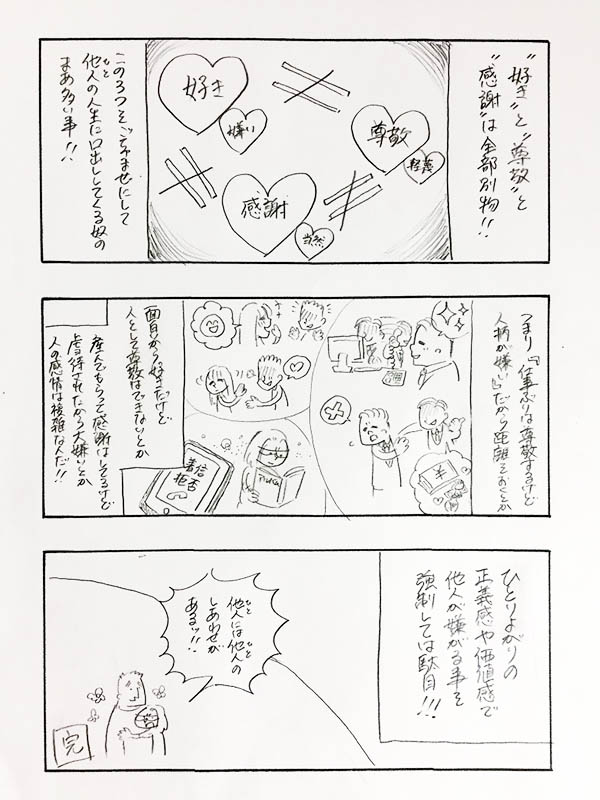 “好き”と“尊敬”と
“感謝”は全部別物!!
好き
嫌い
尊敬
軽蔑
感謝
当然
この3つをごちゃまぜにして
他人の人生に口出ししてくる奴の
ひと
まあ多い事!!
つまり『仕事ぶりは尊敬するけど
人柄が嫌い』だから距離をおくとか
面白いから好きだけど
人として尊敬はできないとか
着信
拒否
産んでもらって感謝はしてるけど
虐待されたから大嫌いとか
人の感情は複雑なんだ!!
ひとりよがりの
正義感や価値感で
他人が嫌がる事を
ひと
強制しては駄目!!!
他人には他人の
ひと
ひと
しあわせが
あるッ!!
完